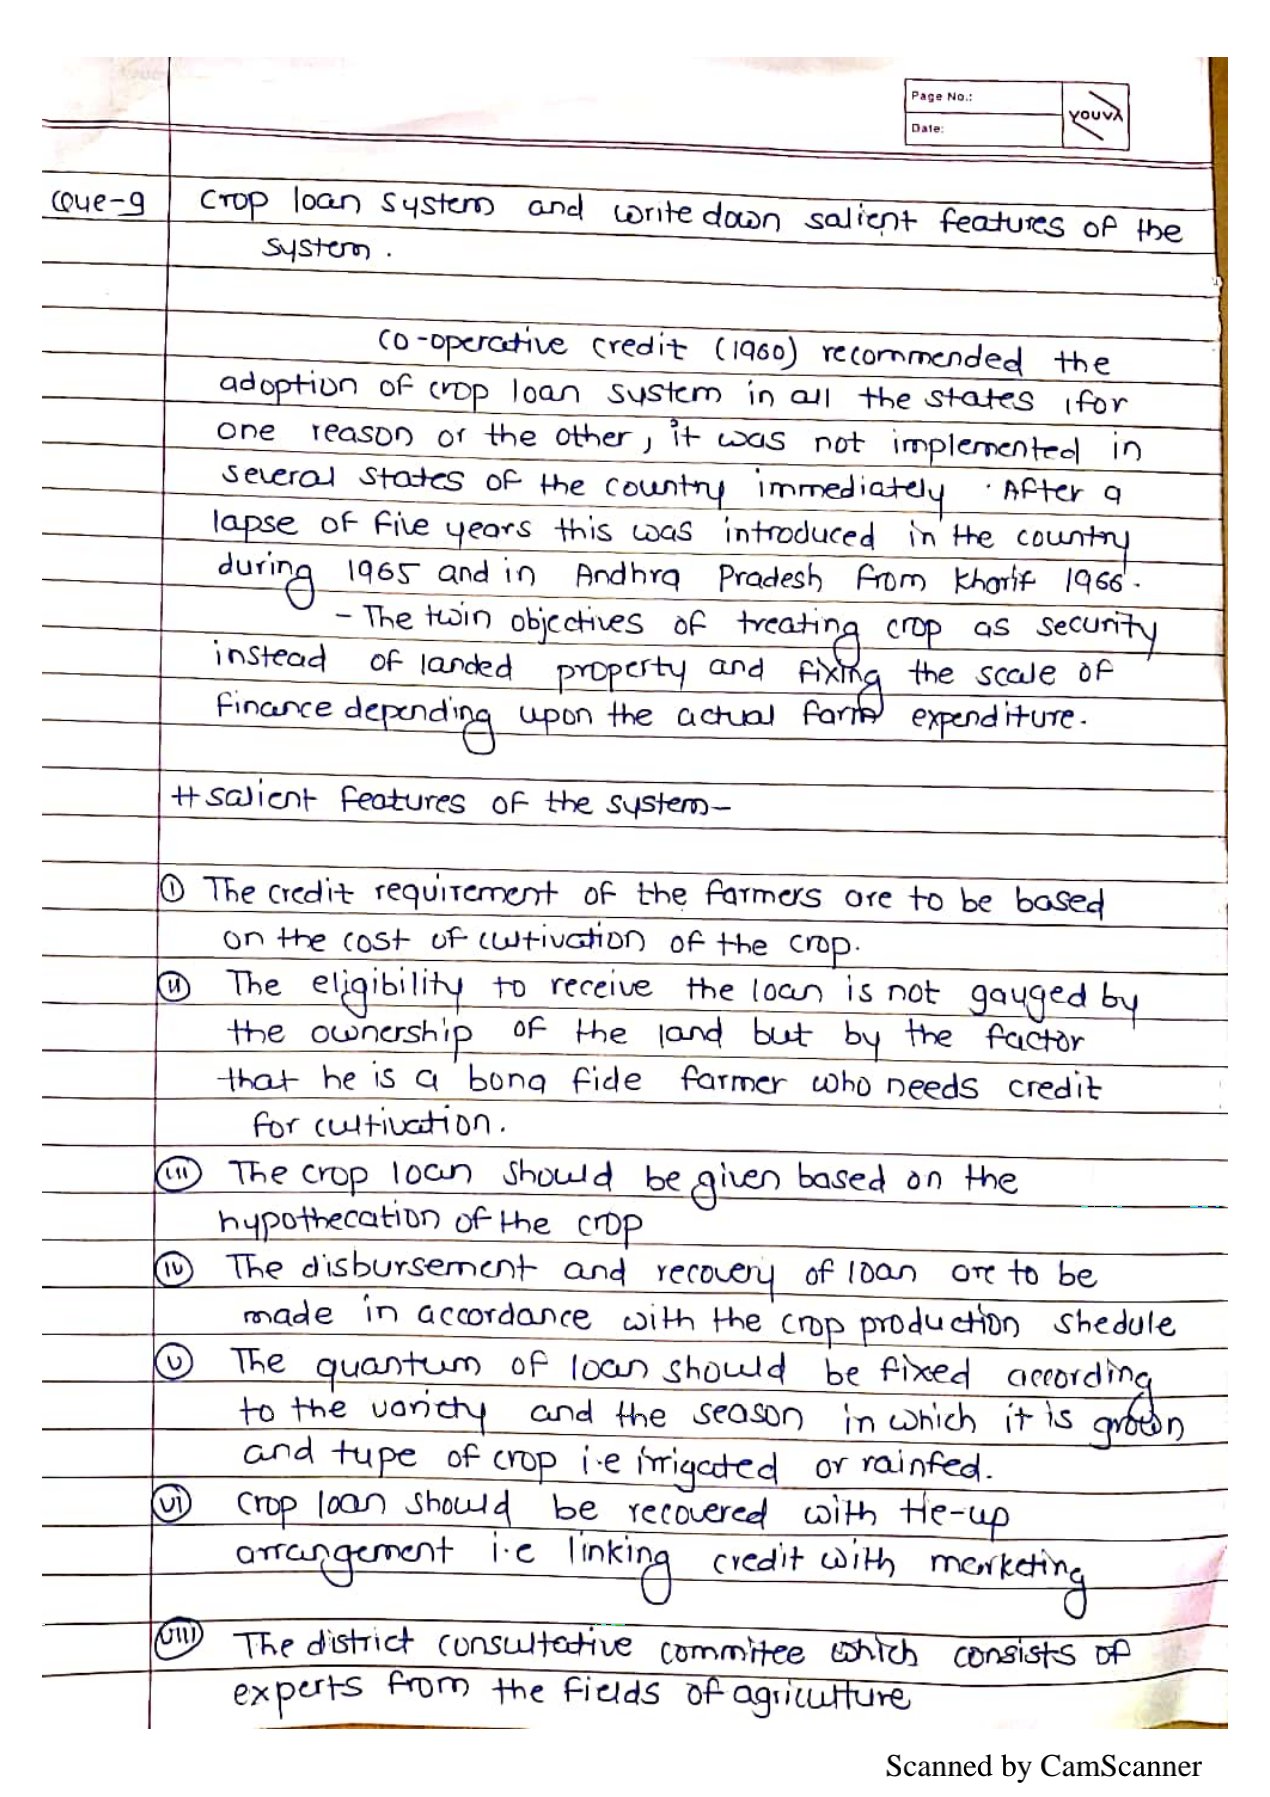 Page No.:
Date:
YOUVA
Que-9 Crop loan system and write down salient features of the
system.
Co-operative credit (1960) recommended the
adoption of crop loan system in all the states , for
one reason or the other, it was not implemented in
several states of the country immediately . After a
lapse of five years this was introduced in the country
during 1965 and in Andhra Pradesh from Kharif 1966.
- The twin objectives of treating crop as security
instead of landed property and fixing the scale of
finance depending upon the actual farm expenditure.
# Salient features of the system-
(i) The credit requirement of the farmers are to be based
on the cost of cultivation of the crop.
(ii) The eligibility to receive the loan is not gauged by
the ownership of the land but by the factor
that he is a bona fide farmer who needs credit
for cultivation.
(iii) The crop loan should be given based on the
hypothecation of the crop
(iv) The disbursement and recovery of loan are to be
made in accordance with the crop production shedule
(v) The quantum of loan should be fixed according
to the variety and the season in which it is grown
and type of crop i.e irrigated or rainfed.
(vi) Crop loan should be recovered with tie-up
arrangement i.e linking credit with marketing
(viii) The district consultative commitee which consists of
experts from the fields of agriculture
Scanned by CamScanner